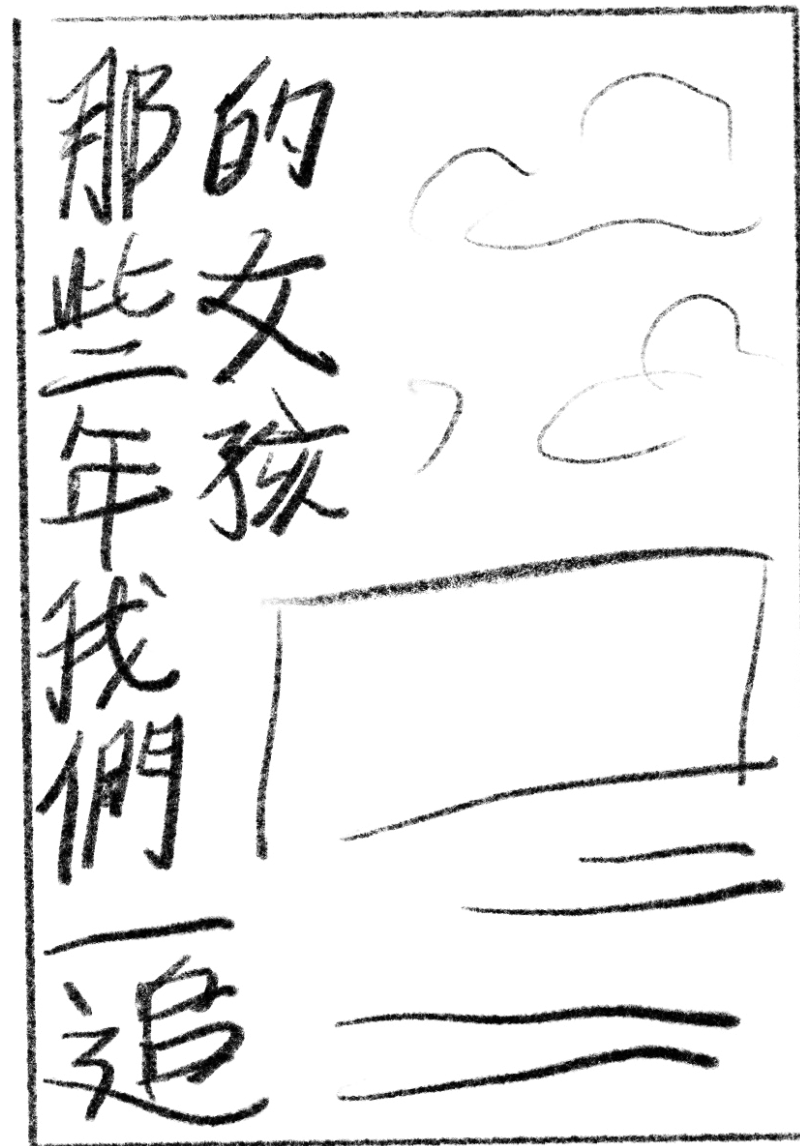 那些年我們一追
的女孩